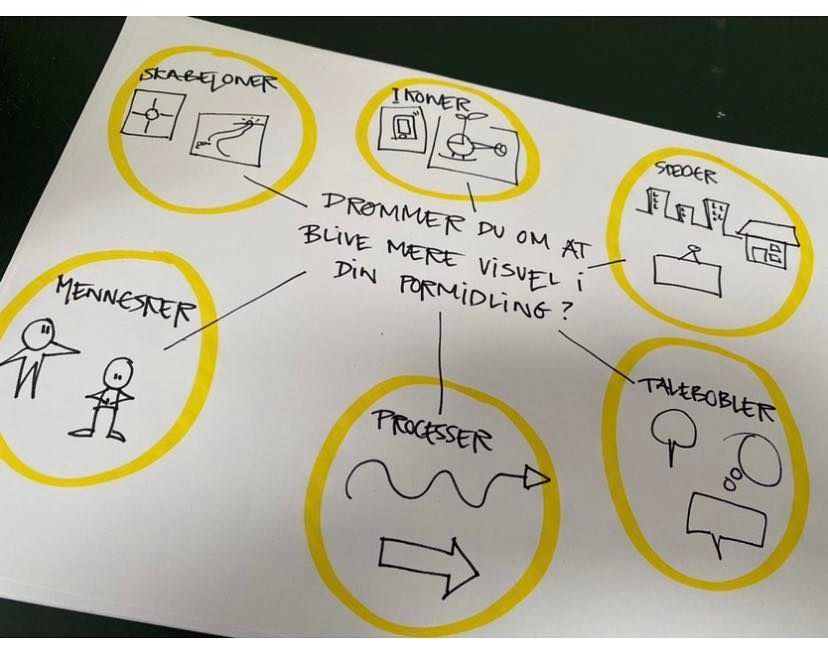 SKABELONER
IKONER
STEDER
DRØMMER DU OM AT
BLIVE MERE VISUEL I
DIN FORMIDLING?
MENNESKER
PROCESSER
TALEBOBLER